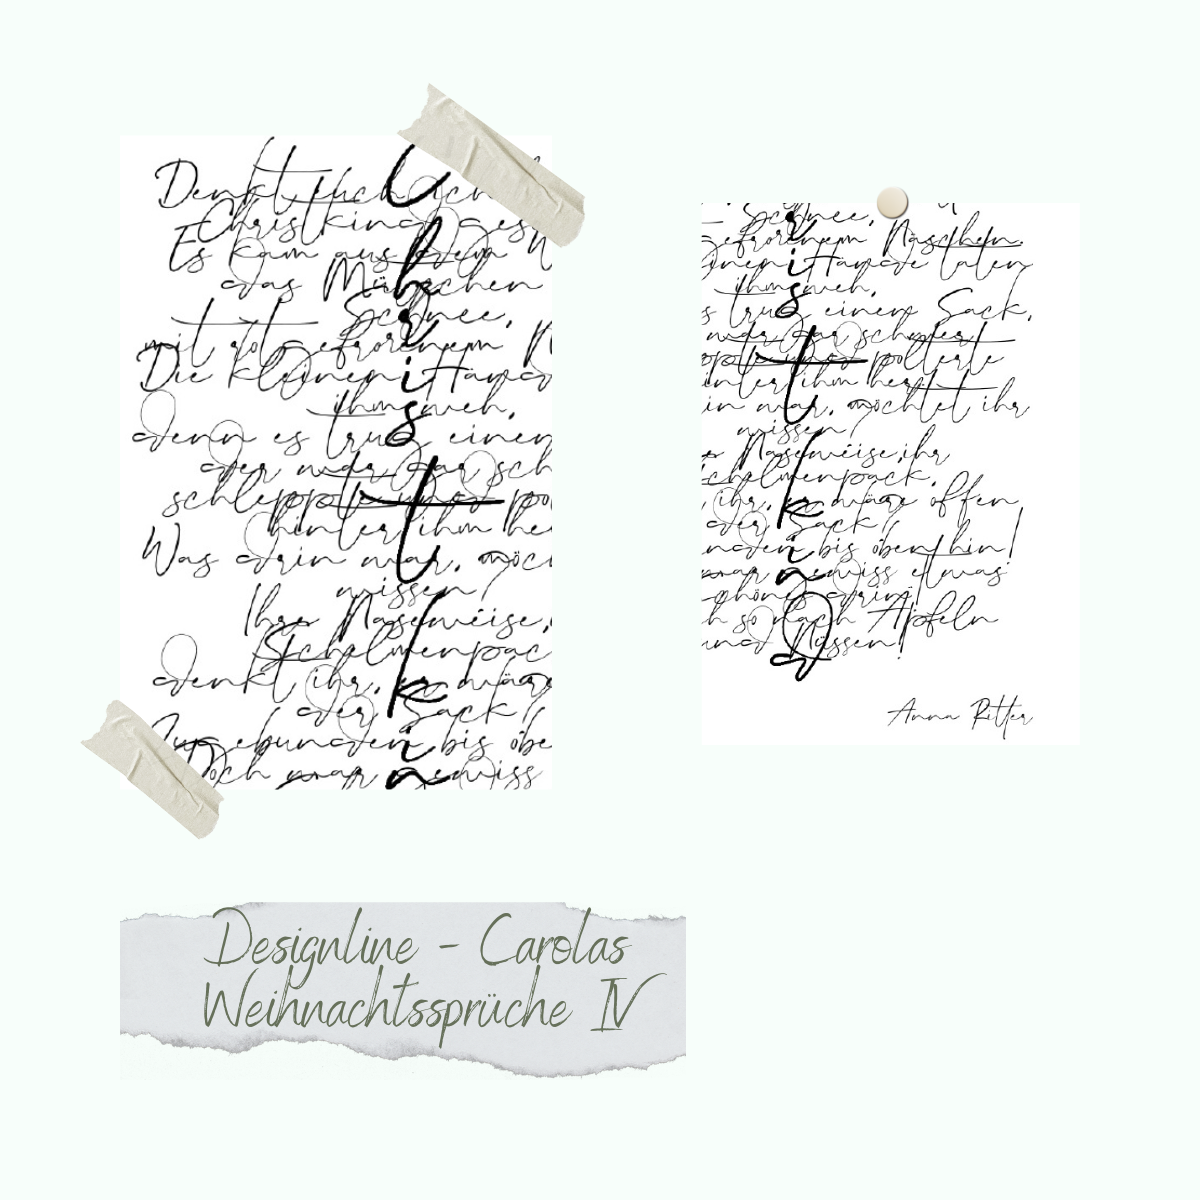 Denkt euch, ich
Christkind ges
Es kam aus dem W
das Mützchen
Schnee,
mit rotgefrorenem N
Die kleinen Hände
ihm weh,
denn es trug einen
der war gar sch
schleppte und po
hinter ihm he
Was drin war, möch
wissen?
Ihre Naseweise,
Schelmenpac
denkt ihr, er wäre
der Sack?
Zugebunden bis obe
Doch war gewiss
Christkin
Schnee,
gefrorenem Näschen.
inen Hände taten
ihm weh,
s trug einen Sack,
war gar schwer
ppte und polterte
inter ihm her
in war, möchtet ihr
wissen?
Naseweise, ihr
chelmenpack,
ihr, er wäre offen
der Sack?
unden bis oben hin!
war gewiss etwas
chönes drin!
h so nach Äpfeln
und Nüssen!
ristkind
Anna Ritter
Designline - Carolas
Weihnachtssprüche IV